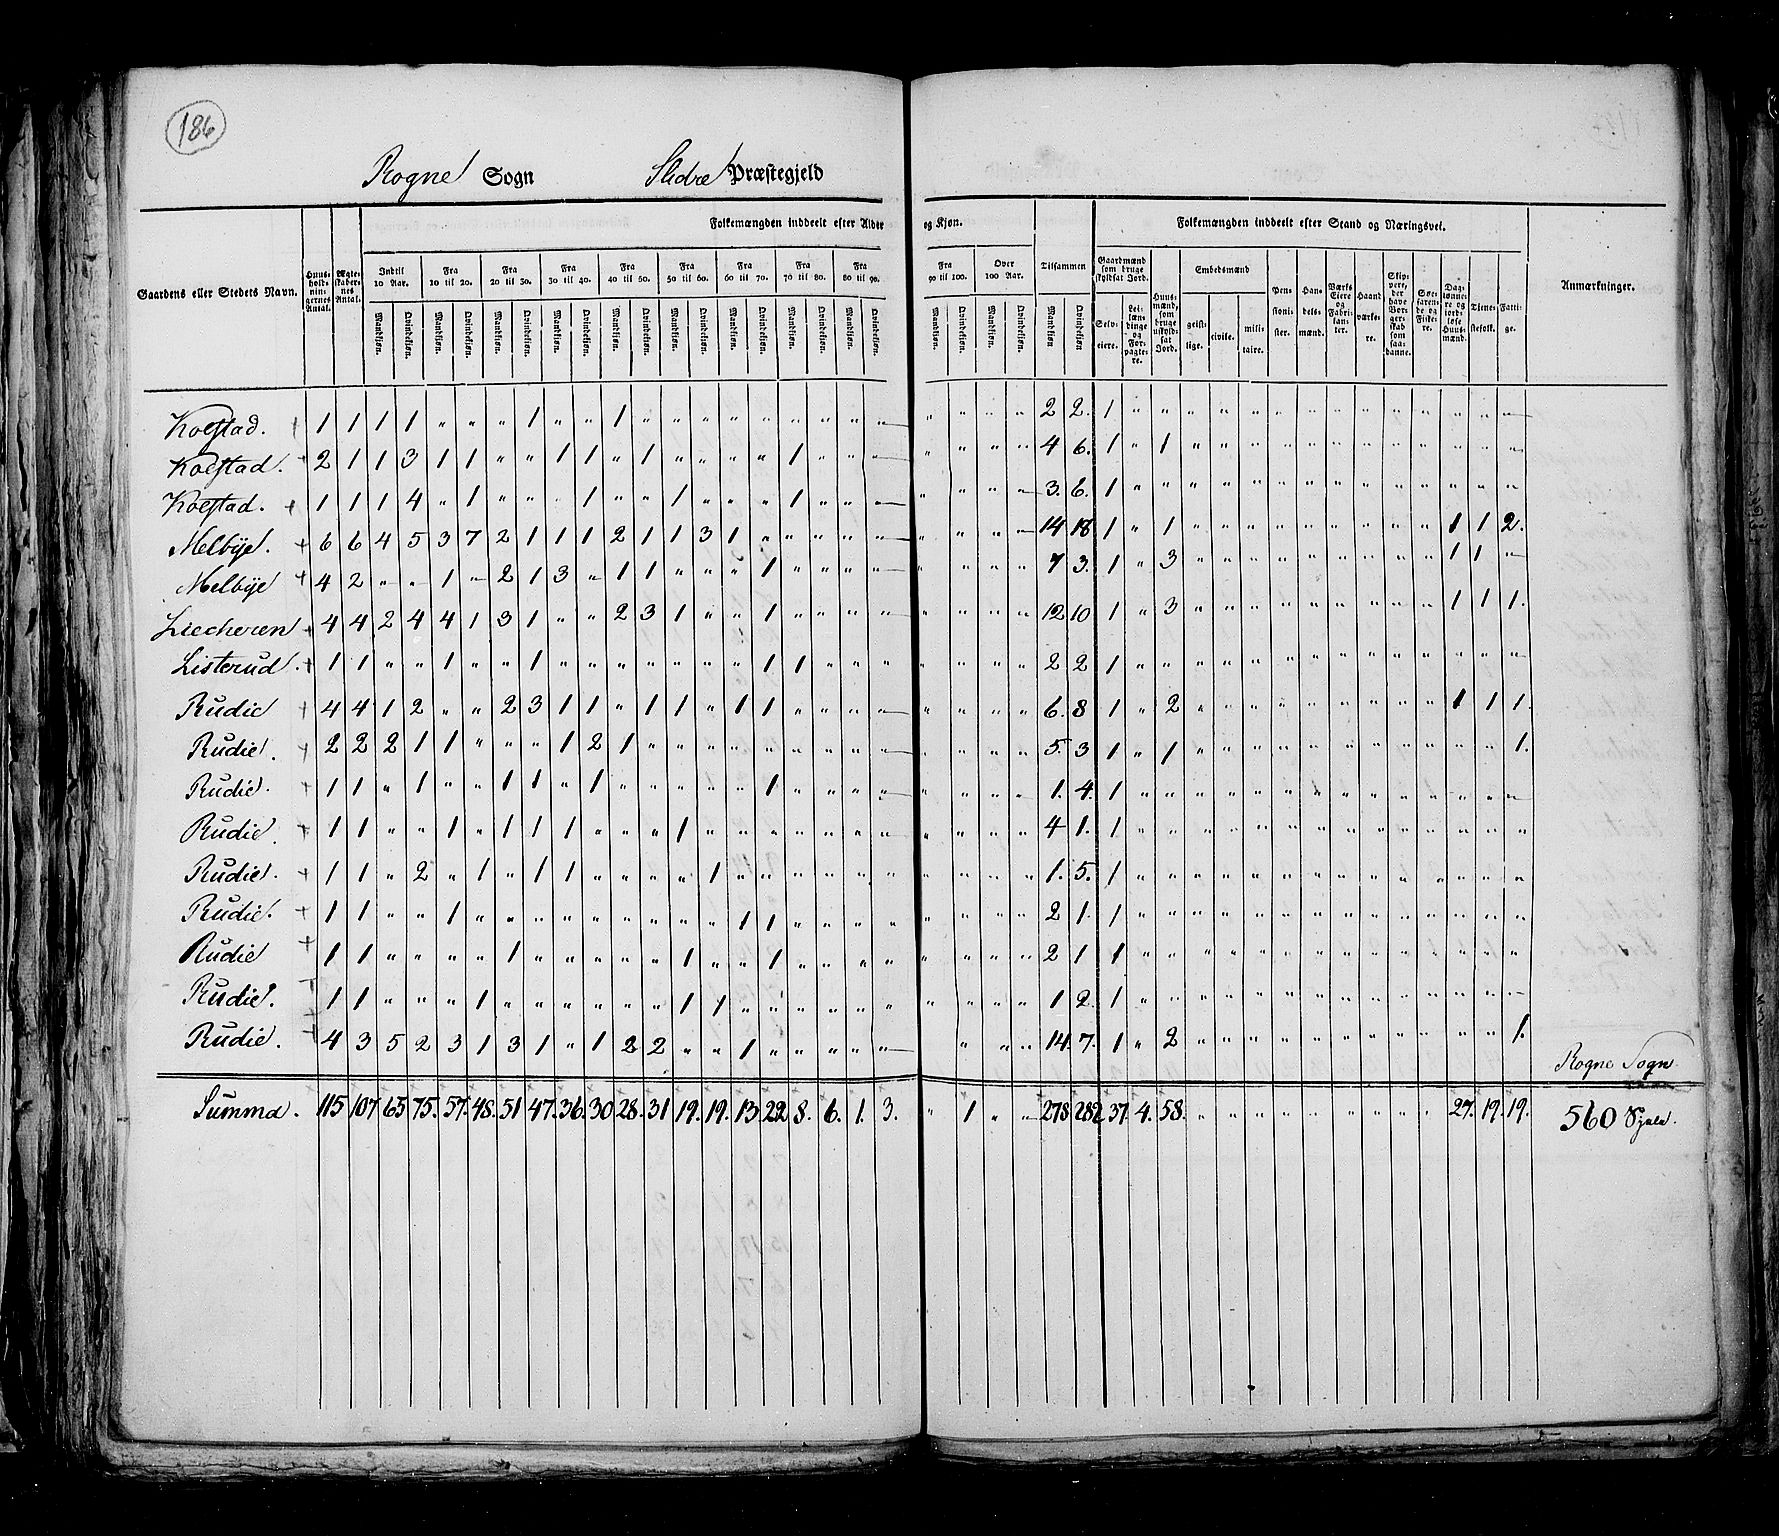 186
Rogne Sogn Slidre Præstegjeld
Gaardens eller Stedets Navn. Huusholdningernes Antal. Ægteskabernes Antal. Folkemængden inddeelt efter Alder og Kjøn. Tilsammen Folkemængden inddeelt efter Stand og Næringsvei. Anmærkninger.
Indtil 10 Aar. Fra 10 til 20. Fra 20 til 30. Fra 30 til 40. Fra 40 til 50. Fra 50 til 60. Fra 60 til 70. Fra 70 til 80. Fra 80 til 90. Fra 90 til 100. Over 100 Aar.
Mandkjøn. Qvindekjøn. Mandkjøn. Qvindekjøn. Mandkjøn. Qvindekjøn. Mandkjøn. Qvindekjøn. Mandkjøn. Qvindekjøn. Mandkjøn. Qvindekjøn. Mandkjøn. Qvindekjøn. Mandkjøn. Qvindekjøn. Mandkjøn. Qvindekjøn. Mandkjøn. Qvindekjøn. Mandkjøn. Qvindekjøn. Mandkjøn Qvindekjøn
Gaardmænd som bruge skyldsat Jord. Selveiere. Leilændinge og Forpagtere. Huusmænd, som bruge uskyldsat Jord. Embedsmænd geistlige. civile. militaire. Pensionister. Handelsmænd. Værks Eiere og Fabrikanter. Haandværkere. Skippere, der have Borgerskab som saadanne. Søefarende og Fiskere. Daglønnere og jordløse Huusmænd. Tjenestefolk. Fattige.
Koestad. + 1 1 1 1 " " " 1 " " 1 " " " " " " " " " " " " " 2 2. 1 " " " " " " " " " " " " " "
Koestad. + 2 1 1 3 1 1 " " 1 1 " 1 " " " " 1 " " " " " " 4 6. 1 " 1 " " " " " " " " " " " "
Koestad. + 1 1 1 4 " 1 " " " 1 " " 1 " " " 1 " " " " " " " 3. 6. 1 " " " " " " " " " " " " " "
Melbye. + 6 6 4 5 3 7 2 1 1 1 2 1 1 3 1 " " " " " " " " 14 18. 1 " 1 " " " " " " " " " 1 1 2.
Melbye + 4 2 " " 1 " 2 1 3 " 1 1 " " " 1 " " " " " " " 7 3. 1 " 3 " " " " " " " " " 1 1 "
Liecheren + 4 4 2 4 4 1 3 1 " " 2 3 1 " " 1 " " " " " " " " 12 10 1 " 3 " " " " " " " " " 1 1 1.
Listerud. + 1 1 " " 1 " " 1 " " " " " " " 1 1 " " " " " " " 2 2 1 " " " " " " " " " " " " " "
Rudie + 4 4 1 2 " " 2 3 1 1 " 1 1 " 1 1 " " " " " " " " 6. 8 1 " 2 " " " " " " " " " 1 1 1.
Rudie. + 2 2 2 1 1 " " " 1 2 1 " " " " " " " " " " " " " 5. 3 1 " 1 " " " " " " " " " " " 1.
Rudie. + 1 1 " 1 " " 1 1 " 1 " " " " " 1 " " " " " " " " 1. 4. 1 " " " " " " " " " " " " " "
Rudie. + 1 1 " " 1 " 1 1 1 " " " 1 " " " " " " " " " " " 4 1. 1 " " " " " " " " " " " " " "
Rudie. + 1 1 " 2 " 1 " 1 1 " " " " 1 " " " " " " " " " " 1. 5. 1 " " " " " " " " " " " " " "
Rudie. + 1 1 " " 1 " " " " " " " " " 1 1 " " " " " " " " 2 1. 1 " " " " " " " " " " " " " "
Rudie + 1 1 " " " " 1 " " " " " 1 " " 1 " " " " " " " " 2 1 1 " " " " " " " " " " " " " "
Rudie. + 1 1 " " " 1 " " " " " " 1 1 " " " " " " " " " " 1 2. 1 " " " " " " " " " " " " " "
Rudie. + 4 3 5 2 3 1 3 1 " 1 2 2 " " 1 " " " " " " " " 14. 7. 1 " 2 " " " " " " " " " " " 1.
Rogne Sogn
Summa. 115 107 65 75. 57. 48. 51 47. 36. 30 28. 31 19. 19. 13. 22 8. 6. 1. 3. " 1 " " 278 282 37. 4. 58. " " " " " " " " " 27. 19. 19. 560 Sjæle.